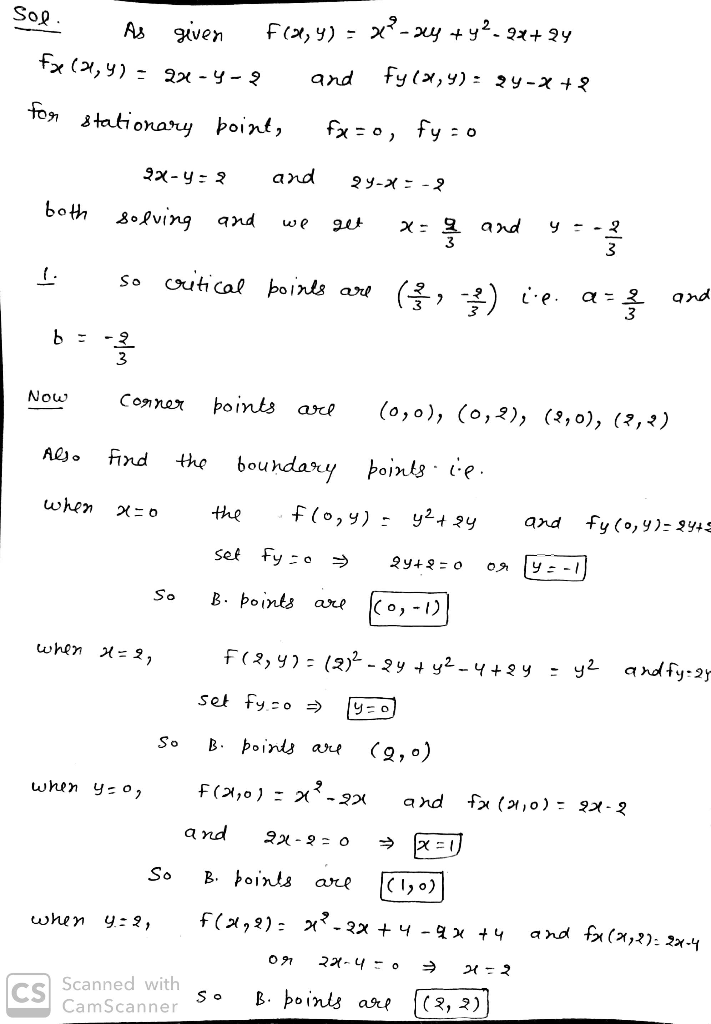 Sol. As given F(x,y) = x² - xy + y² - 2x + 2y
Fx (x,y) = 2x - y - 2 and Fy (x,y) = 2y - x + 2
for stationary point, fx = 0, fy = 0
2x - y = 2 and 2y - x = -2
both solving and we get x = 2/3 and y = -2/3
1. so critical points are (2/3, -2/3) i.e. a = 2/3 and
b = -2/3
Now Corner points are (0,0), (0,2), (2,0), (2,2)
Also find the boundary points i.e.
when x=0 the f(0,y) = y² + 2y and fy (0,y) = 2y+2
set fy = 0 ⇒ 2y+2 = 0 or y = -1
So B. points are (0,-1)
when x = 2, f(2,y) = (2)² - 2y + y² - 4 + 2y = y² and fy = 2y
set fy = 0 ⇒ y = 0
So B. points are (2,0)
when y = 0, F(x,0) = x² - 2x and fx (x,0) = 2x - 2
and 2x - 2 = 0 ⇒ x = 1
So B. points are (1,0)
when y = 2, f(x,2) = x² - 2x + 4 - 2x + 4 and fx (x,2) = 2x-4
or 2x - 4 = 0 ⇒ x = 2
so B. points are (2,2)
CS Scanned with
CamScanner